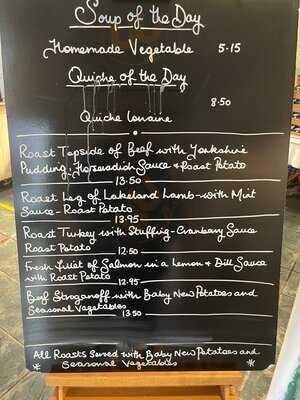 Soup of the Day
Homemade Vegetable 5.15
Quiche of the Day
8.50
Quiche Lorraine
Roast Topside of Beef with Yorkshire
Pudding, Horseradish Sauce & Roast Potato
13.50
Roast Leg of Lakeland Lamb with Mint
Sauce - Roast Potato
13.95
Roast Turkey with Stuffing - Cranberry Sauce
Roast Potato 12.50
Fresh Fillet of Salmon in a Lemon & Dill Sauce
with Roast Potato 12.95
Beef Stroganoff with Baby New Potatoes and
Seasonal Vegetables 13.50
All Roasts Served with Baby New Potatoes and
* Seasonal Vegetables *